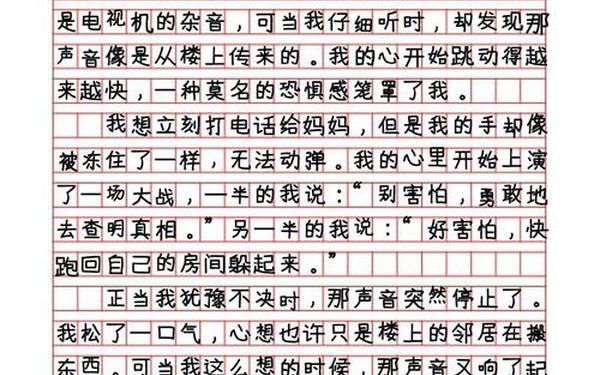 是电视机的杂音，可当我仔细听时，却发现那
声音像是从楼上传来的。我的心开始跳动得越
来越快，一种莫名的恐惧感笼罩了我。
我想立刻打电话给妈妈，但是我的手却像
被冻住了一样，无法动弹。我的心里开始上演
了一场大战，一半的我说：“别害怕，勇敢地
去查明真相。”另一半的我说：“好害怕，快
跑回自己的房间躲起来。”
正当我犹豫不决时，那声音突然停止了。
我松了一口气，心想也许只是楼上的邻居在搬
东西。可当我这么想的时候，那声音又响了起